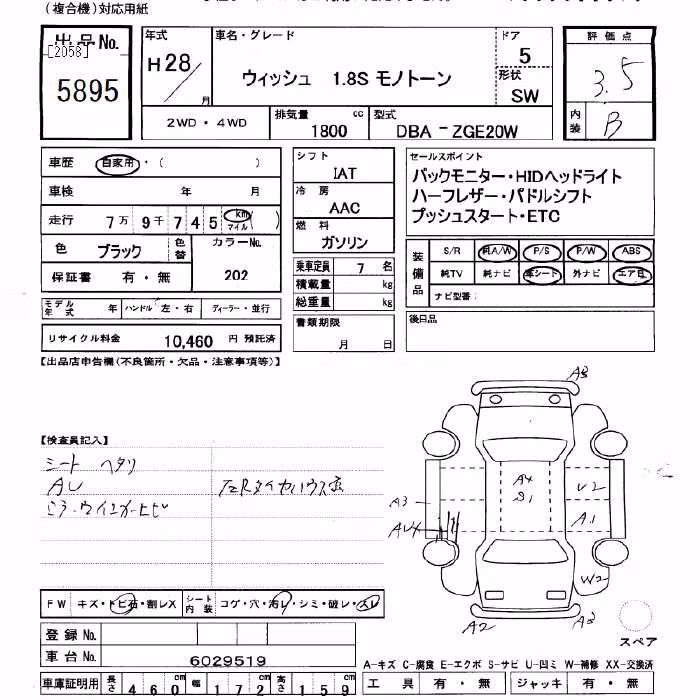 (複合機)対応用紙
出品No.
[2058]
5895
年式
H28/
月
車名・グレード
ウィッシュ 1.8S モノトーン
ドア
5
形状
SW
評価点
3.5
内装
B
2WD・4WD
排気量
cc
1800
型式
DBA－ZGE20W
車歴 自家用・( )
車検 年 月
走行 7万 9千 7 4 5 km マイル ( )
色 ブラック 色替
カラーNo.
202
保証書 有・無
シフト
IAT
冷房
AAC
燃料
ガソリン
乗車定員 7 名
積載量 kg
総重量 kg
セールスポイント
バックモニター・HIDヘッドライト
ハーフレザー・パドルシフト
プッシュスタート・ETC
装備品
S/R 純A/W P/S P/W ABS
純TV 純ナビ 革シート 外ナビ エアB
ナビ型番:
モデル年式 年 ハンドル 左・右 ディーラー・並行
リサイクル料金 10,460 円 預託済
書類期限
月 日
後日品
【出品店申告機(不良箇所・欠品・注意事項等)】
【検査員記入】
シート ヘタリ
AU
ミラーウインカーヒビ
タイヤハウス
A3
A4
S1
U2
A3
A1
W2
A2
A3
FW キズ・トビ石・割レX
シート内装 コゲ・穴・汚レ・シミ・破レ・スレ
登録No.
車台No. 6029519
スペア
A-キズ C-腐食 E-エクボ S-サビ U-凹ミ W-補修 XX-交換済
車庫証明用 長さ 460cm 幅 172cm 高さ 159cm
工具 有・無 ジャッキ 有・無